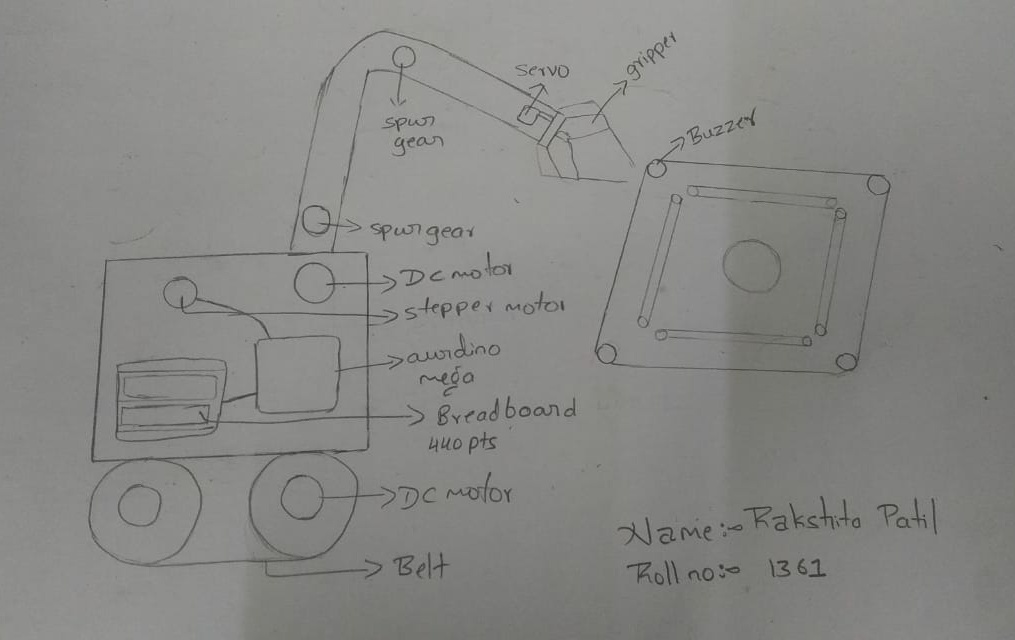 servo
gripper
Buzzer
spur
gear
spur gear
DC motor
stepper motor
aurdino
mega
Breadboard
440 pts
DC motor
Belt
Name:- Rakshita Patil
Roll no:- 1361